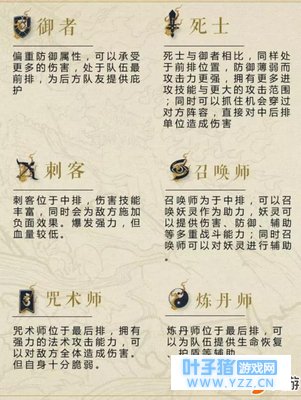 御者
偏重防御属性，可以承受
更多的伤害，处于队伍最
前排，为后方队友提供庇
护
死士
死士与御者相比，同样处
于前排位置，防御薄弱而
攻击力更强，拥有更多进
攻技能与更大的攻击范
围；同时可以抓住机会穿过
对方阵容，直接对中后排
单位造成伤害
刺客
刺客位于中排，伤害技能
丰富，同时会为敌方施加
负面效果。爆发强力，但
血量较低。
召唤师
召唤师位于中排，可以召
唤妖灵作为辅助，妖灵可
以提供伤害、防御、辅助
等多重战斗能力；同时可
以对妖灵进行辅助
咒术师
咒术师位于最后排，拥有
强力的法术攻击能力，可
以对敌方全体造成伤害。
但自身十分脆弱。
炼丹师
炼丹师位于最后排，可以
为队伍提供生命恢复
护盾等辅助
叶子猪游戏网
www.YZZ.CN
游